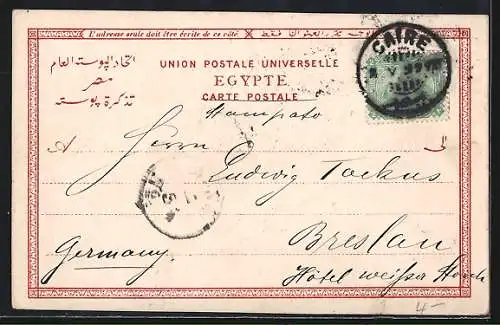 L'adresse seule doit être écrite de ce côté
اتحاد البوسته العام
مصر
تذكرة بوسته
UNION POSTALE UNIVERSELLE
EGYPTE
CARTE POSTALE
CAIRE
Stampato
A
الى
Herrn Ludwig
Breslau
Germany.
Hôtel weißer Storch
4-